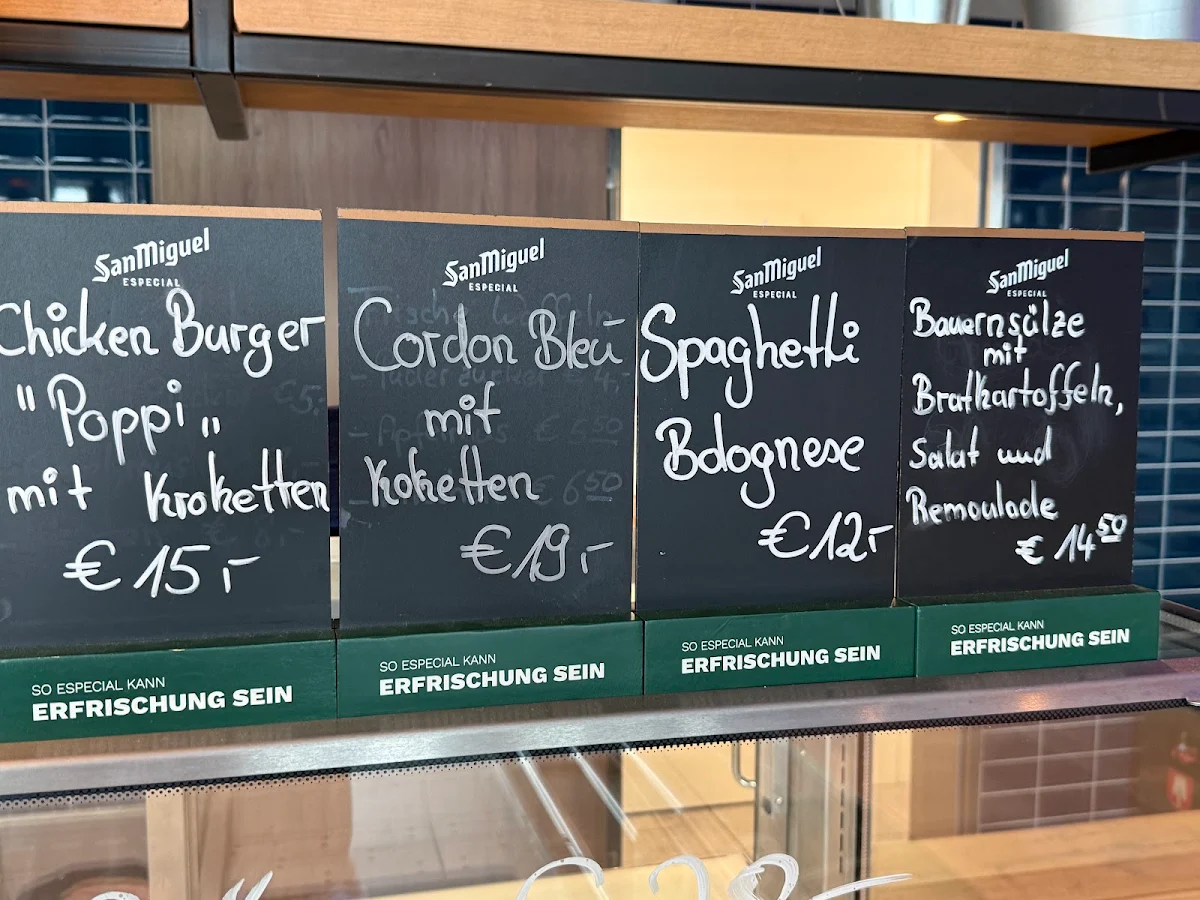 SanMiguel
ESPECIAL
Chicken Burger
"Poppi"
mit Kroketten
€ 15,-
SO ESPECIAL KANN
ERFRISCHUNG SEIN
SanMiguel
ESPECIAL
Cordon Bleu
mit
Koketten
€ 19,-
SO ESPECIAL KANN
ERFRISCHUNG SEIN
SanMiguel
ESPECIAL
Spaghetti
Bolognese
€ 12,-
SO ESPECIAL KANN
ERFRISCHUNG SEIN
SanMiguel
ESPECIAL
Bauernsülze
mit
Bratkartoffeln,
Salat und
Remoulade
€ 14 50
SO ESPECIAL KANN
ERFRISCHUNG SEIN